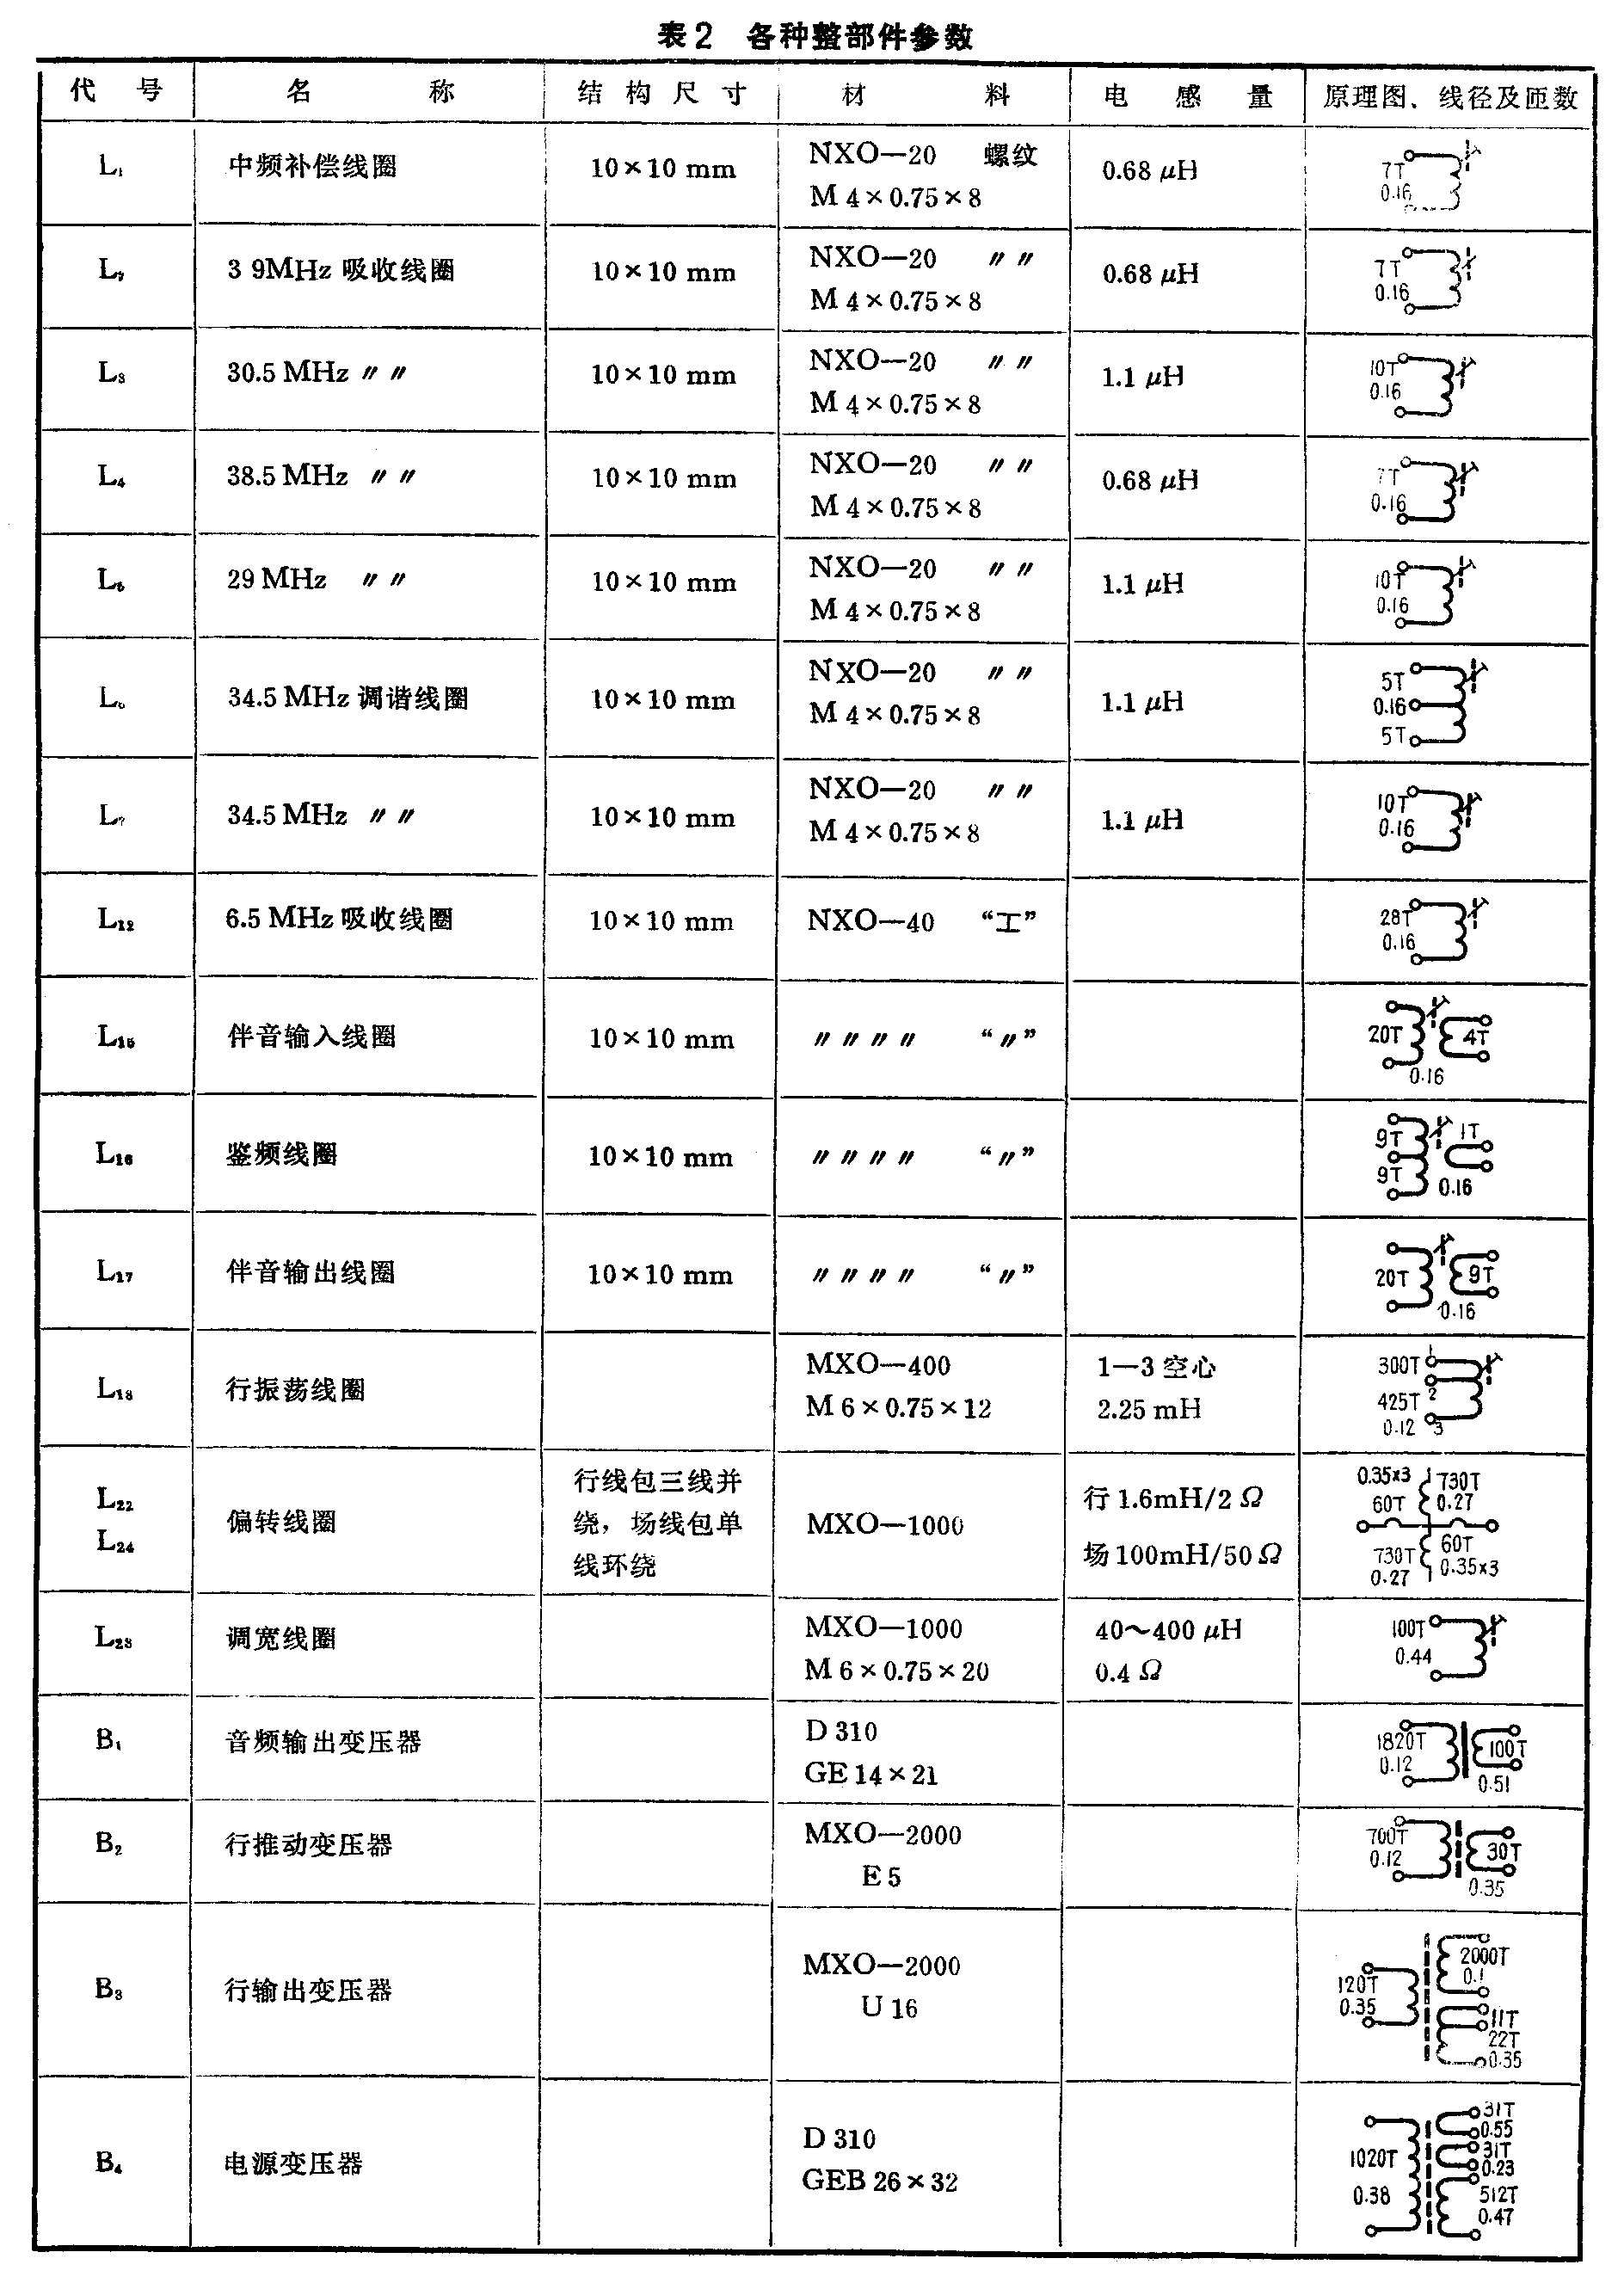 表2 各种整部件参数
代 号 名 称 结 构 尺 寸 材 料 电 感 量 原理图、线径及匝数
L₁ 中频补偿线圈 10×10 mm NXO—20 螺纹 M 4×0.75×8 0.68 μH 7T 0.16
L₂ 3 9MHz 吸收线圈 10×10 mm NXO—20 〃〃 M 4×0.75×8 0.68 μH 7T 0.16
L₃ 30.5 MHz 〃〃 10×10 mm NXO—20 〃〃 M 4×0.75×8 1.1 μH 10T 0.16
L₄ 38.5 MHz 〃〃 10×10 mm NXO—20 〃〃 M 4×0.75×8 0.68 μH 7T 0.16
L₅ 29 MHz 〃〃 10×10 mm NXO—20 〃〃 M 4×0.75×8 1.1 μH 10T 0.16
L₆ 34.5 MHz 调谐线圈 10×10 mm NXO—20 〃〃 M 4×0.75×8 1.1 μH 5T 0.16 5T
L₇ 34.5 MHz 〃〃 10×10 mm NXO—20 〃〃 M 4×0.75×8 1.1 μH 10T 0.16
L₁₂ 6.5 MHz 吸收线圈 10×10 mm NXO—40 “工” 28T 0.16
L₁₅ 伴音输入线圈 10×10 mm 〃〃〃〃 “〃” 20T 4T 0.16
L₁₆ 鉴频线圈 10×10 mm 〃〃〃〃 “〃” 9T 1T 9T 0.16
L₁₇ 伴音输出线圈 10×10 mm 〃〃〃〃 “〃” 20T 9T 0.16
L₁₈ 行振荡线圈 MXO—400 M 6×0.75×12 1—3 空心 2.25 mH 300T 1 425T 2 0.12 3
L₂₂ L₂₄ 偏转线圈 行线包三线并绕，场线包单线环绕 MXO—1000 行 1.6mH/2 Ω 场 100mH/50 Ω 0.35×3 730T 60T 0.27 730T 60T 0.27 0.35×3
L₂₃ 调宽线圈 MXO—1000 M 6×0.75×20 40～400 μH 0.4 Ω 100T 0.44
B₁ 音频输出变压器 D 310 GE 14×21 1820T 0.12 100T 0.51
B₂ 行推动变压器 MXO—2000 E 5 700T 0.12 30T 0.35
B₃ 行输出变压器 MXO—2000 U 16 120T 0.35 2000T 0.1 11T 22T 0.35
B₄ 电源变压器 D 310 GEB 26×32 1020T 0.38 31T 0.55 31T 0.23 512T 0.47